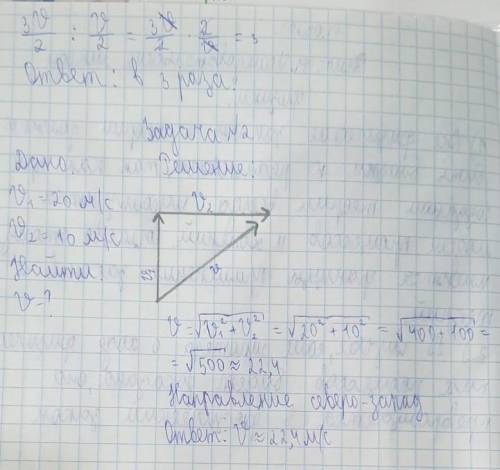 3𝒱/2 : 𝒱/2 = 3𝒱/2 · 2/𝒱 = 3
Ответ: в 3 раза.
Задача №2
Дано: Решение:
𝒱₁ = 20 м/с
𝒱₂ = 10 м/с
Найти:
𝒱 = ?
𝒱₂
𝒱₁
𝒱
𝒱 = √(𝒱₁² + 𝒱₂²) = √(20² + 10²) = √(400 + 100) =
= √500 ≈ 22,4
Направление северо-запад
Ответ: 𝒱 ≈ 22,4 м/с